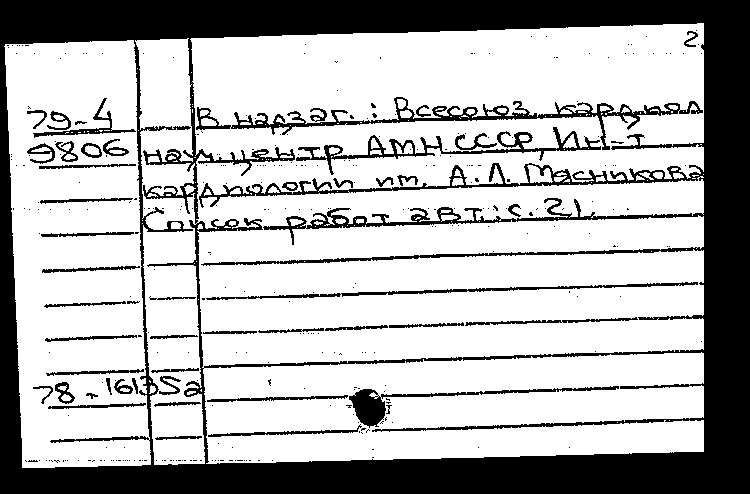 2.
79-4 В надзаг.: Всесоюз. кардиол
9806 науч. центр АМН СССР, Ин-т
кардиологии им. А.Л. Мясникова
Список работ авт.: с. 21.
78-16135а